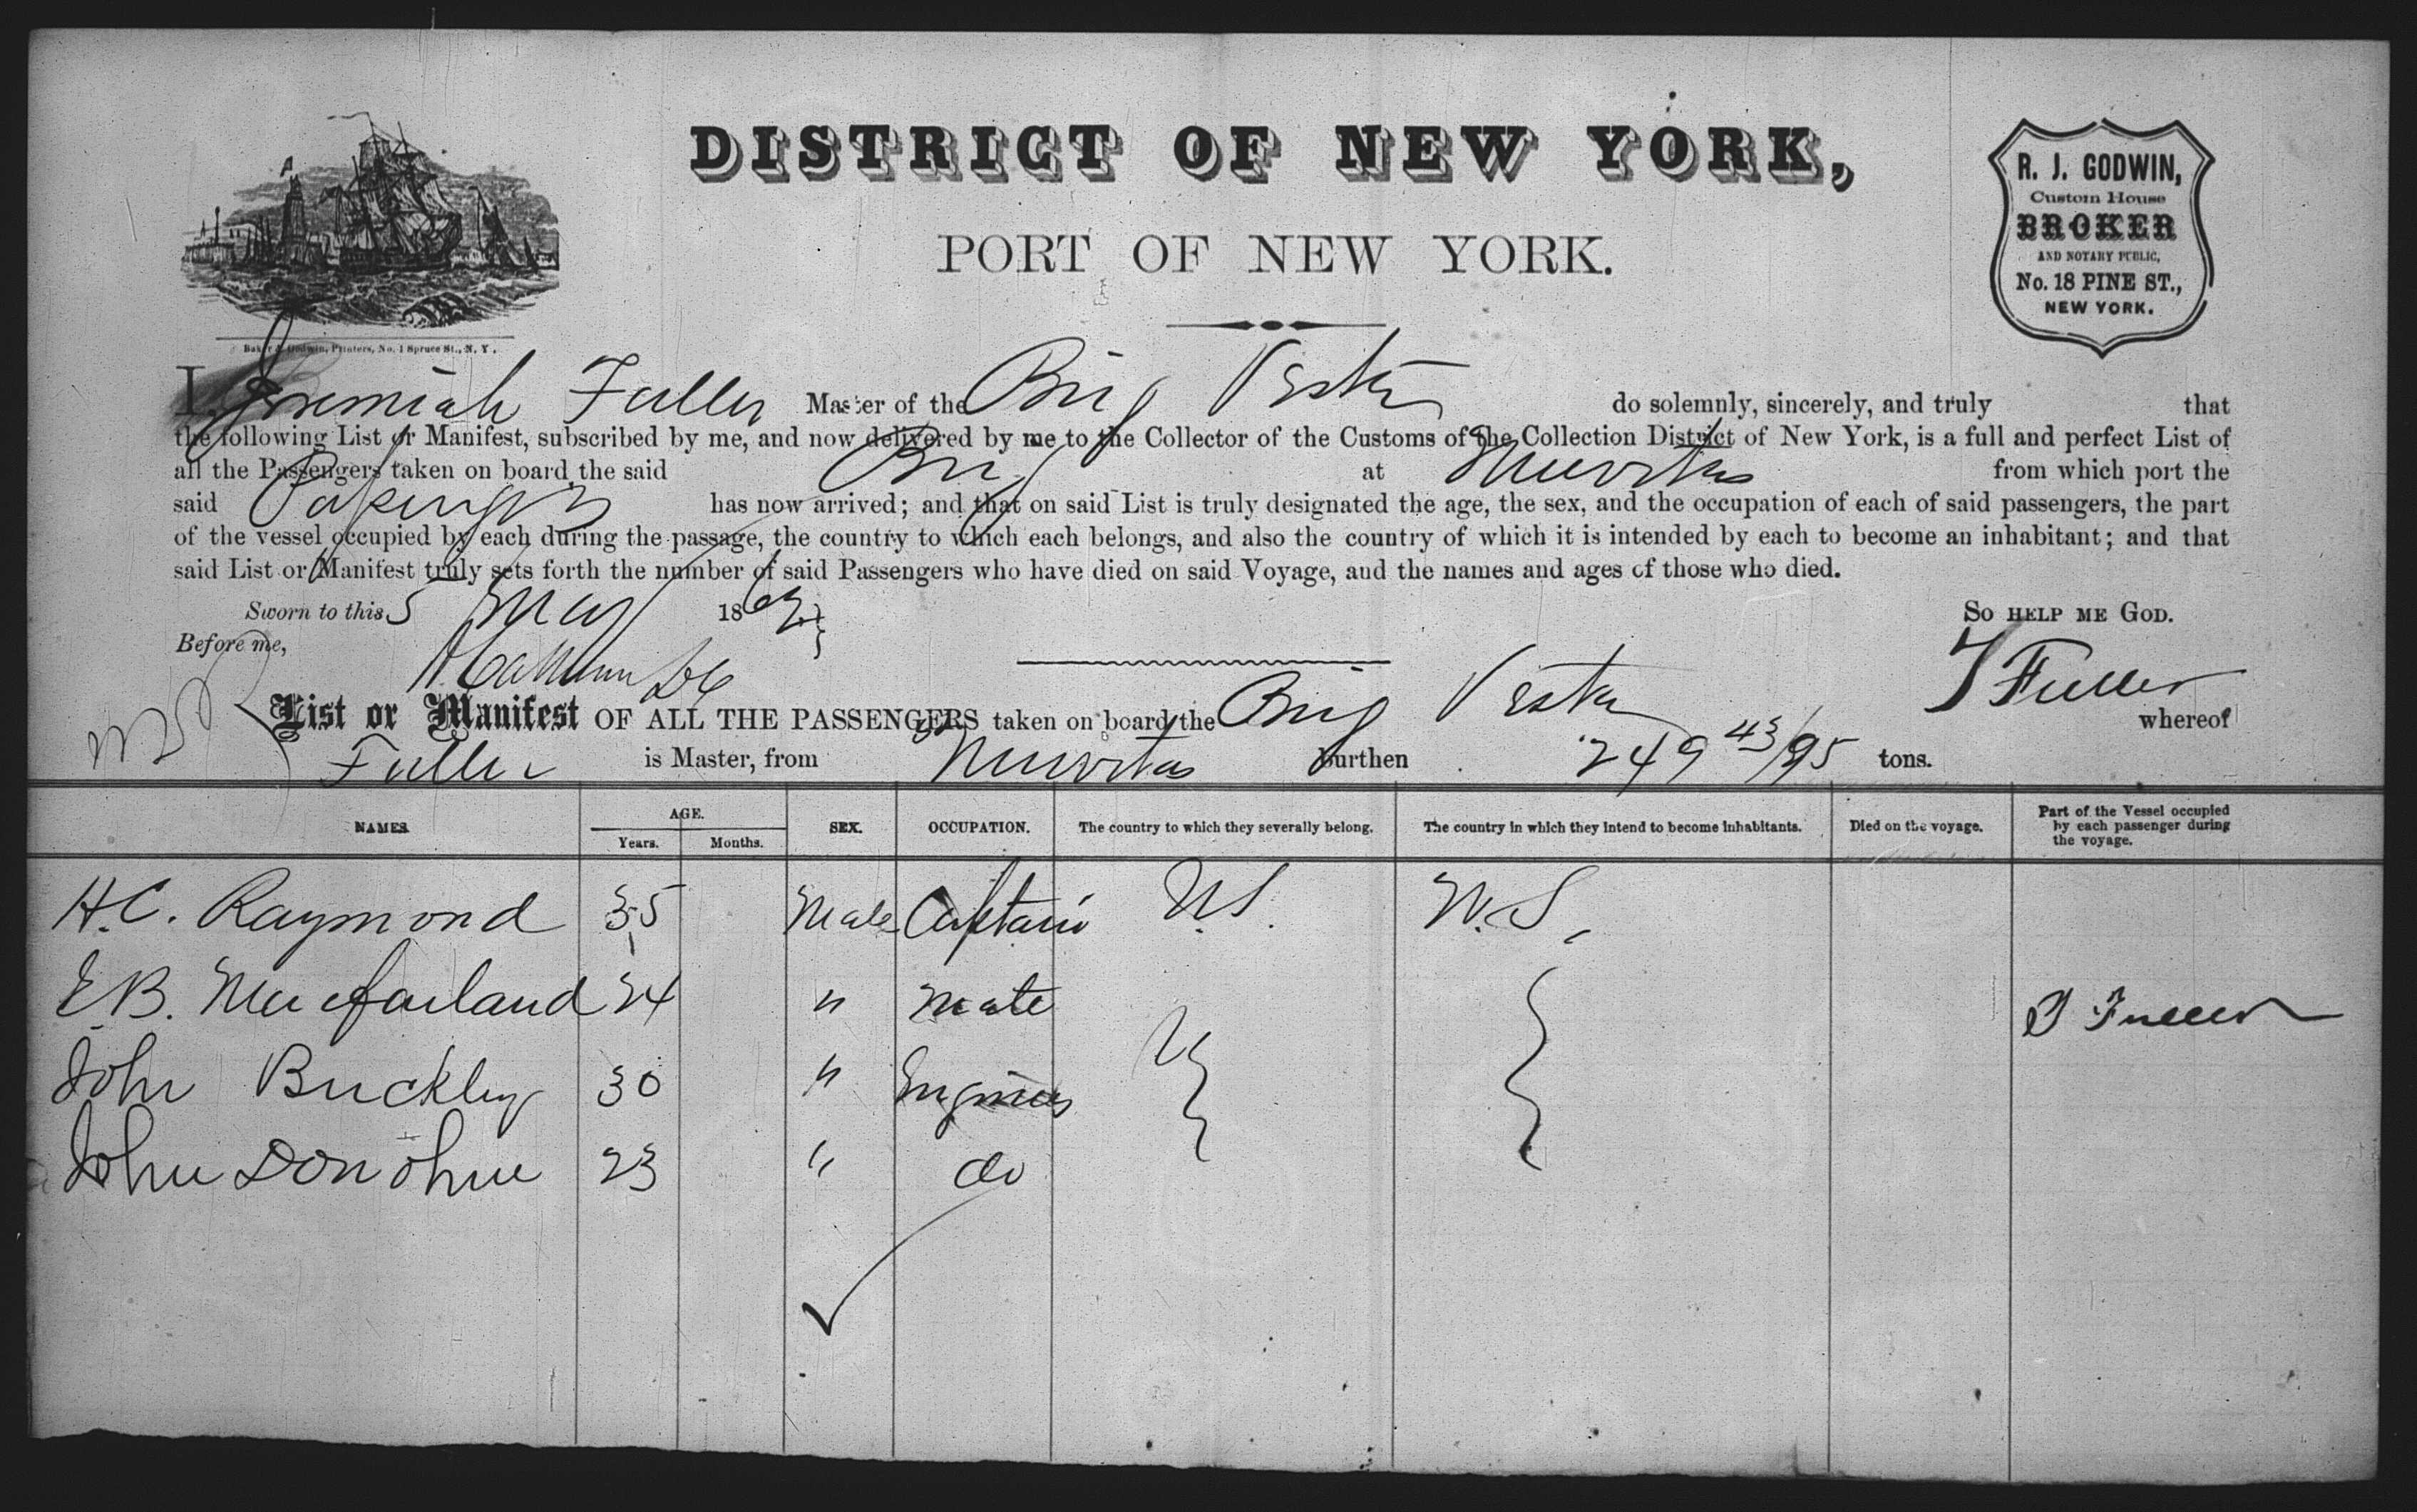 DISTRICT OF NEW YORK,
PORT OF NEW YORK.
R. J. GODWIN,
Custom House
BROKER
AND NOTARY PUBLIC,
No. 18 PINE ST.,
NEW YORK.
Baker & Godwin, Printers, No. 1 Spruce St., N. Y.
I, Jeremiah Fuller Master of the Brig Vesta do solemnly, sincerely, and truly that
the following List or Manifest, subscribed by me, and now delivered by me to the Collector of the Customs of the Collection District of New York, is a full and perfect List of
all the Passengers taken on board the said Brig at Nuevitas from which port the
said has now arrived; and that on said List is truly designated the age, the sex, and the occupation of each of said passengers, the part
of the vessel occupied by each during the passage, the country to which each belongs, and also the country of which it is intended by each to become an inhabitant; and that
said List or Manifest truly sets forth the number of said Passengers who have died on said Voyage, and the names and ages of those who died.
Sworn to this 5 May 1863 So help me God.
Before me,
J Fuller
List or Manifest OF ALL THE PASSENGERS taken on board the Brig Vesta whereof
Fuller is Master, from Nuevitas burthen 249 43/95 tons.
NAMES AGE. Years. Months. SEX. OCCUPATION. The country to which they severally belong. The country in which they intend to become inhabitants. Died on the voyage. Part of the Vessel occupied by each passenger during the voyage.
H.C. Raymond 35 Male Captain U.S. U.S.
E.B. Macfarland 24 " Mate J Fuller
John Buckley 30 " Engineer
John Donohue 23 " do